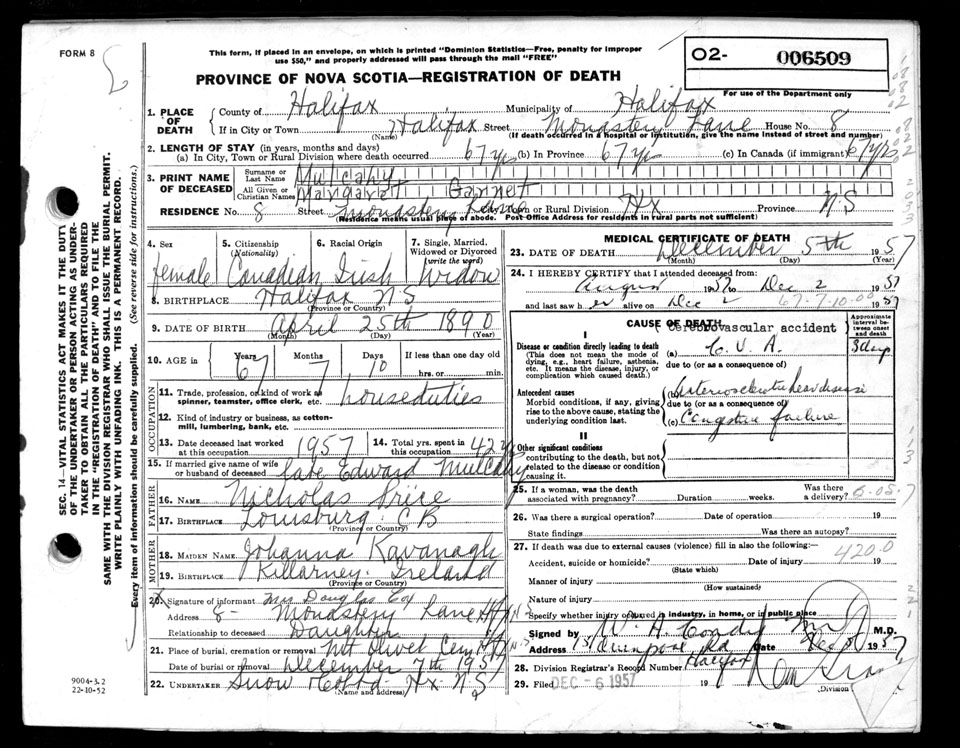 FORM 8
This form, if placed in an envelope, on which is printed "Dominion Statistics—Free, penalty for improper
use $50," and properly addressed will pass through the mail "FREE"
O2- 006509
For use of the Department only
PROVINCE OF NOVA SCOTIA—REGISTRATION OF DEATH
1. PLACE OF DEATH
County of Halifax Municipality of Halifax
If in City or Town Halifax Street Monastery Lane House No. 8
(Name) (If death occurred in a hospital or institution, give the name instead of street and number)
2. LENGTH OF STAY (in years, months and days)
(a) In City, Town or Rural Division where death occurred 67 yrs (b) In Province 67 yrs (c) In Canada (if immigrant) 67 yrs
3. PRINT NAME OF DECEASED
Surname or Last Name Mulcahy
All Given or Christian Names Margaret Garnet
RESIDENCE No. 8 Street Monastery Lane City, Town or Rural Division Hx Province N.S
(Residence means usual place of abode. Post Office Address for residents in rural parts not sufficient)
4. Sex
female
5. Citizenship (Nationality)
Canadian
6. Racial Origin
Irish
7. Single, Married, Widowed or Divorced (write the word)
Widow
8. BIRTHPLACE Halifax N S
(Province or Country)
9. DATE OF BIRTH April 25th 1890
(Month) (Day) (Year)
10. AGE in Years Months Days If less than one day old
67 7 10 hrs. or min.
OCCUPATION
11. Trade, profession, or kind of work as spinner, teamster, office clerk, etc. houseduties
12. Kind of industry or business, as cotton-mill, lumbering, bank, etc.
13. Date deceased last worked at this occupation 1957
14. Total yrs. spent in this occupation 42 yrs
15. If married give name of wife or husband of deceased late Edward Mulcahy
FATHER
16. NAME Nicholas Price
17. BIRTHPLACE Louisburg C B
(Province or Country)
MOTHER
18. MAIDEN NAME Johanna Kavanagh
19. BIRTHPLACE Killarney Ireland
(Province or Country)
20. Signature of informant Mrs Douglas Cox
Address 8- Monastery Lane Hfx N.S.
Relationship to deceased Daughter
21. Place of burial, cremation or removal Mt Olivet Cem Hfx
Date of burial or removal December 7th 1957
22. UNDERTAKER Snow & Co Ltd Hx N S
(Name and address)
MEDICAL CERTIFICATE OF DEATH
23. DATE OF DEATH December 5th 1957
(Month) (Day) (Year)
24. I HEREBY CERTIFY that I attended deceased from:
August 1957 to Dec 2 1957
and last saw her alive on Dec 2 1957
67-7-10-00
CAUSE OF DEATH
Approximate interval between onset and death
I
Cerebrovascular accident
Disease or condition directly leading to death
(This does not mean the mode of dying, e.g., heart failure, asthenia, etc. It means the disease, injury, or complication which caused death.)
(a) C. V. A. 3 days
due to (or as a consequence of)
Antecedent causes
Morbid conditions, if any, giving rise to the above cause, stating the underlying condition last.
(b) Arteriosclerotic heart disease
due to (or as a consequence of)
(c) Congestive failure
II
Other significant conditions
contributing to the death, but not related to the disease or condition causing it.
25. If a woman, was the death associated with pregnancy? Duration weeks. Was there a delivery?
26. Was there a surgical operation? Date of operation 19
State findings Was there an autopsy?
27. If death was due to external causes (violence) fill in also the following:—
420.0
Accident, suicide or homicide? Date of injury 19
(State which)
Manner of injury
(How sustained)
Nature of injury
Specify whether injury occurred in industry, in home, or in public place
Signed by M.D.
Address Date Dec 5 1957
28. Division Registrar's Record Number Halifax
29. Filed DEC - 6 1957 19
Division
SEC. 14—VITAL STATISTICS ACT MAKES IT THE DUTY
OF THE UNDERTAKER OR PERSON ACTING AS UNDER-
TAKER TO OBTAIN ALL THE PARTICULARS REQUIRED
IN THE "REGISTRATION OF DEATH" AND TO FILE THE
SAME WITH THE DIVISION REGISTRAR WHO SHALL ISSUE THE BURIAL PERMIT.
WRITE PLAINLY WITH UNFADING INK. THIS IS A PERMANENT RECORD.
Every item of information should be carefully supplied. (See reverse side for instructions.)
9004-3.2
22-10-52